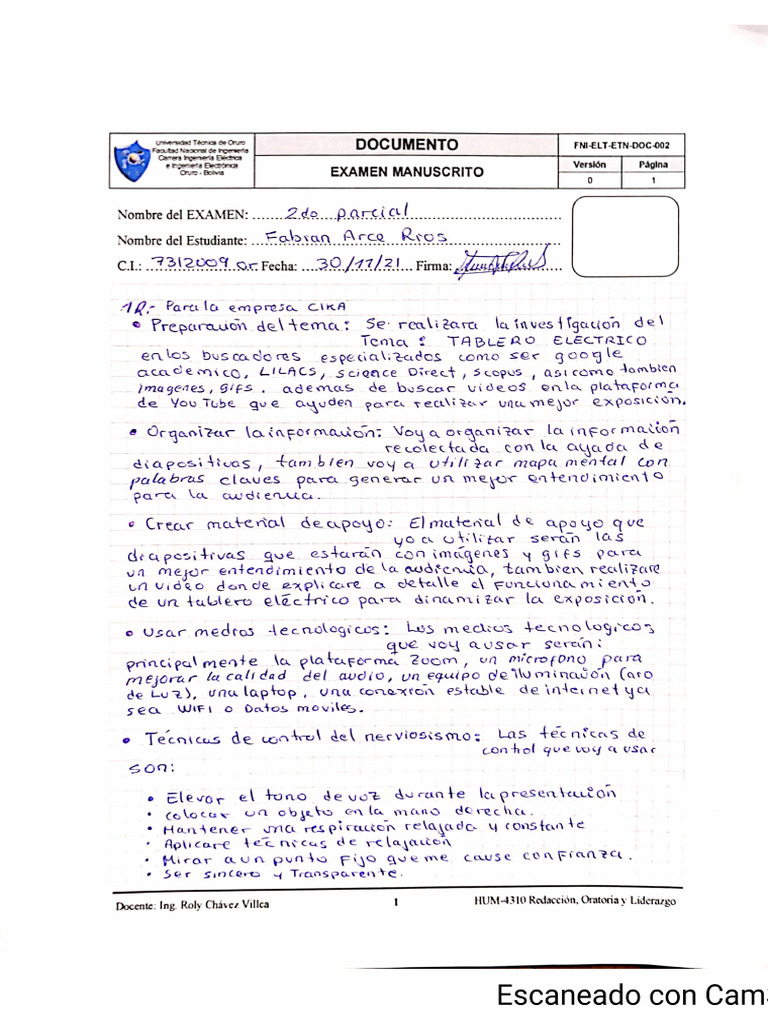 Universidad Técnica de Oruro
Facultad Nacional de Ingeniería
Carrera Ingeniería Eléctrica
e Ingeniería Electrónica
Oruro - Bolivia
DOCUMENTO
EXAMEN MANUSCRITO
FNI-ELT-ETN-DOC-002
Versión Página
0 1
Nombre del EXAMEN: 2do parcial
Nombre del Estudiante: Fabian Arce Rios
C.I.: 7312009 or. Fecha: 30/11/21 Firma:
1R.- Para la empresa CIKA
• Preparación del tema: Se realizara la investigación del
Tema: TABLERO ELECTRICO
en los buscadores especializados como ser google
academico, LILACS, science Direct, scopus, asi como tambien
imagenes, gifs. ademas de buscar videos en la plataforma
de YouTube que ayuden para realizar una mejor exposición.
• Organizar la información: Voy a organizar la información
recolectada con la ayuda de
diapositivas, tambien voy a utilizar mapa mental con
palabras claves para generar un mejor entendimiento
para la audiencia.
• Crear material de apoyo: El material de apoyo que
yo a utilizar serán las
diapositivas que estarán con imágenes y gifs para
un mejor entendimiento de la audiencia, tambien realizare
un video donde explicare a detalle el funcionamiento
de un tablero eléctrico para dinamizar la exposición.
• Usar medios tecnologicos: Los medios tecnologicos
que voy a usar serán:
principalmente la plataforma Zoom, un microfono para
mejorar la calidad del audio, un equipo de iluminación (aro
de Luz), una laptop, una conexión estable de internet ya
sea WIFI o Datos moviles.
• Técnicas de control del nerviosismo: Las técnicas de
control que voy a usar
son:
• Elevar el tono de voz durante la presentación
• colocar un objeto en la mano derecha.
• Mantener una respiración relajada y constante
• Aplicare técnicas de relajación
• Mirar a un punto fijo que me cause confianza.
• Ser sincero y Transparente.
Docente: Ing. Roly Chávez Villca 1 HUM-4310 Redacción, Oratoria y Liderazgo
Escaneado con CamS